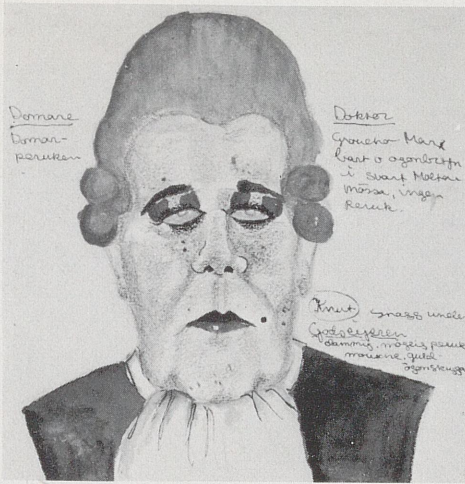 Domare
Domar-
peruken
Doktor
Groucho Marx
bart o ögonbryn
i svart
mössa, ingen
Peruk.
Knut
snazz under
Godsejeren
dammig, peruk
mouche, guld